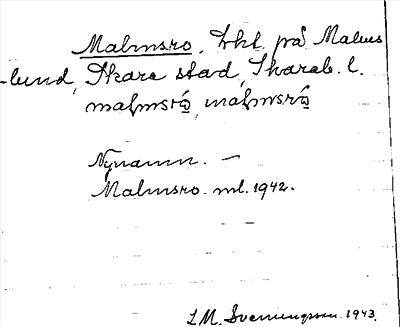 Malmsro, Lht. på Malms
-lund, Skara stad, Skarab. l.
malmsrω̨, malmsrω̨
Nynamn. —
Malmsro ml. 1942.
L.M. Svenungsson 1943.